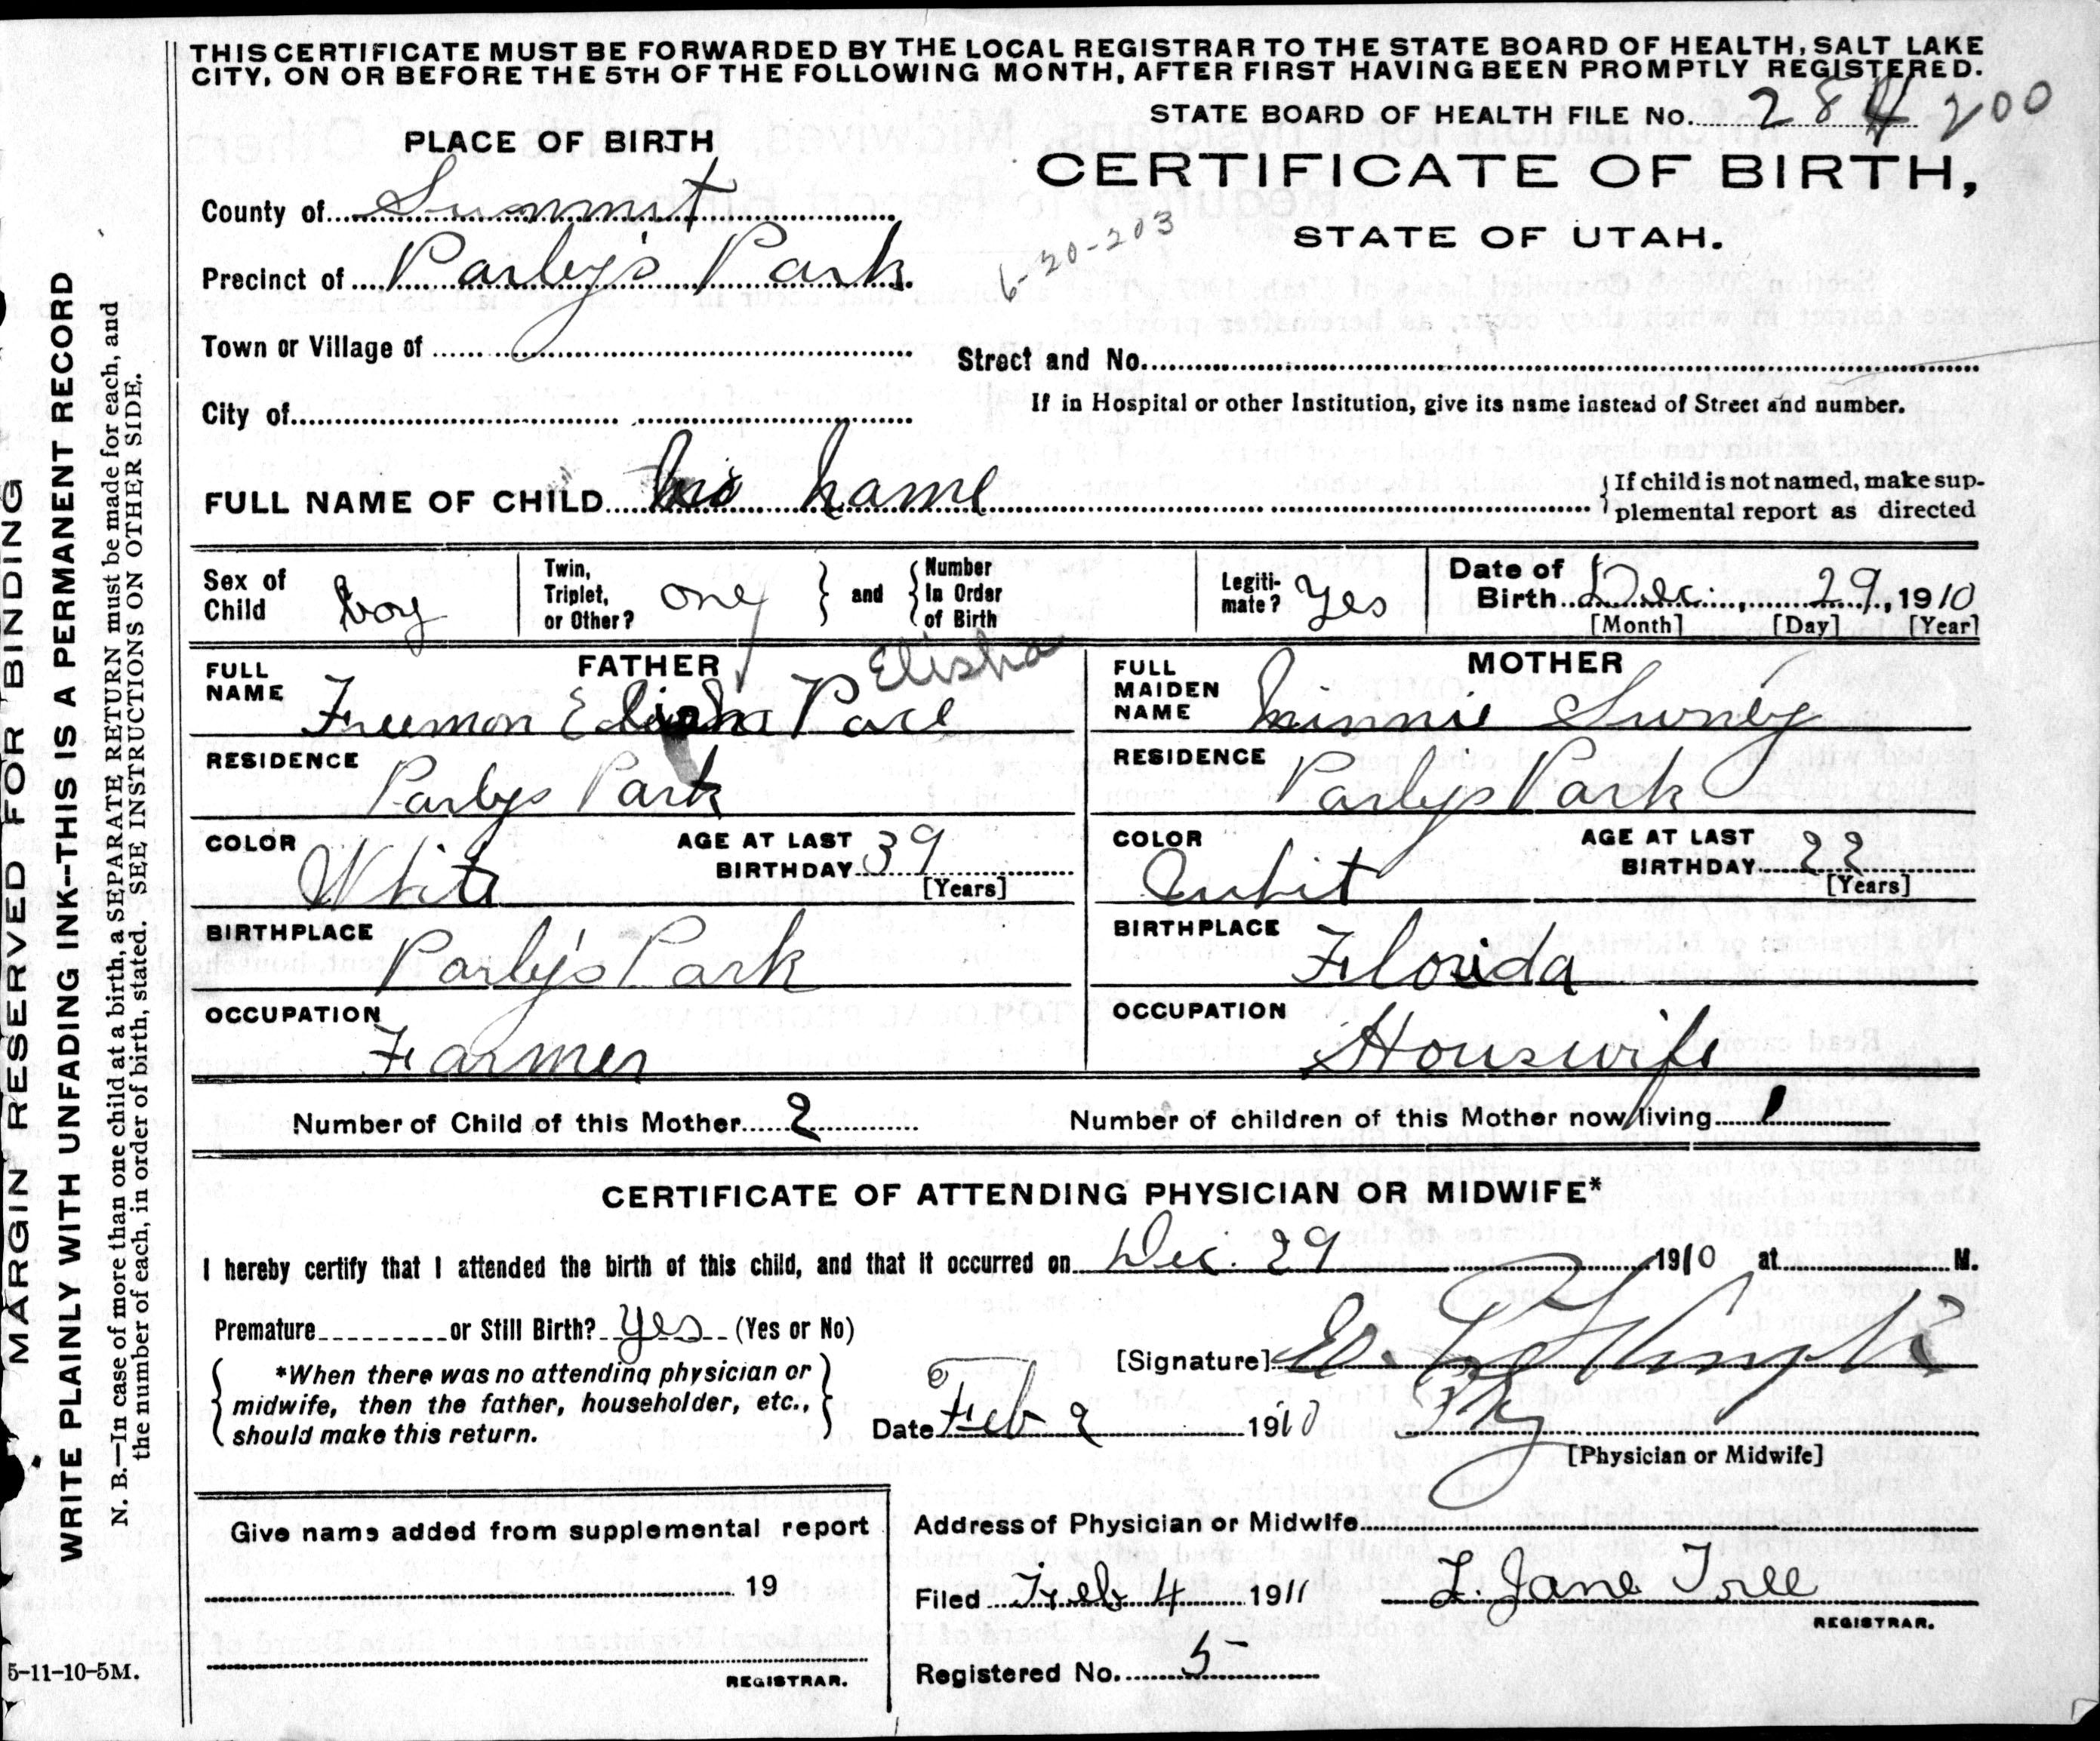 THIS CERTIFICATE MUST BE FORWARDED BY THE LOCAL REGISTRAR TO THE STATE BOARD OF HEALTH, SALT LAKE
CITY, ON OR BEFORE THE 5TH OF THE FOLLOWING MONTH, AFTER FIRST HAVING BEEN PROMPTLY REGISTERED.
STATE BOARD OF HEALTH FILE No. 284 200
PLACE OF BIRTH
CERTIFICATE OF BIRTH,
STATE OF UTAH.
County of Summit
6-20-203
Precinct of Parley's Park.
Town or Village of
Street and No.
City of
If in Hospital or other Institution, give its name instead of Street and number.
FULL NAME OF CHILD no name
{If child is not named, make sup-
plemental report as directed
Sex of Child boy
Twin, Triplet, or Other? one } and { Number In Order of Birth
Legiti-mate? Yes
Date of Birth Dec. 29, 1910
[Month] [Day] [Year]
FATHER
Elisha
FULL NAME Freemon Elisha Pace
RESIDENCE Parlys Park
COLOR White AGE AT LAST BIRTHDAY 39
[Years]
BIRTHPLACE Parly's Park
OCCUPATION Farmer
MOTHER
FULL MAIDEN NAME Minnie
RESIDENCE Parlys Park
COLOR AGE AT LAST BIRTHDAY 22
[Years]
BIRTHPLACE Florida
OCCUPATION Houswife
Number of Child of this Mother 2
Number of children of this Mother now living 1
CERTIFICATE OF ATTENDING PHYSICIAN OR MIDWIFE*
I hereby certify that I attended the birth of this child, and that it occurred on Dec. 29 1910 at M.
Premature or Still Birth? yes (Yes or No)
*When there was no attending physician or
midwife, then the father, householder, etc.,
should make this return.
[Signature]
Date Feb 2 1910
[Physician or Midwife]
Give name added from supplemental report
19
REGISTRAR.
Address of Physician or Midwife
Filed Feb 4 1911 L. Jane Tree
REGISTRAR.
Registered No. 5
MARGIN RESERVED FOR BINDING
WRITE PLAINLY WITH UNFADING INK--THIS IS A PERMANENT RECORD
N. B.—In case of more than one child at a birth, a SEPARATE RETURN must be made for each, and
the number of each, in order of birth, stated. SEE INSTRUCTIONS ON OTHER SIDE.
5-11-10-5M.